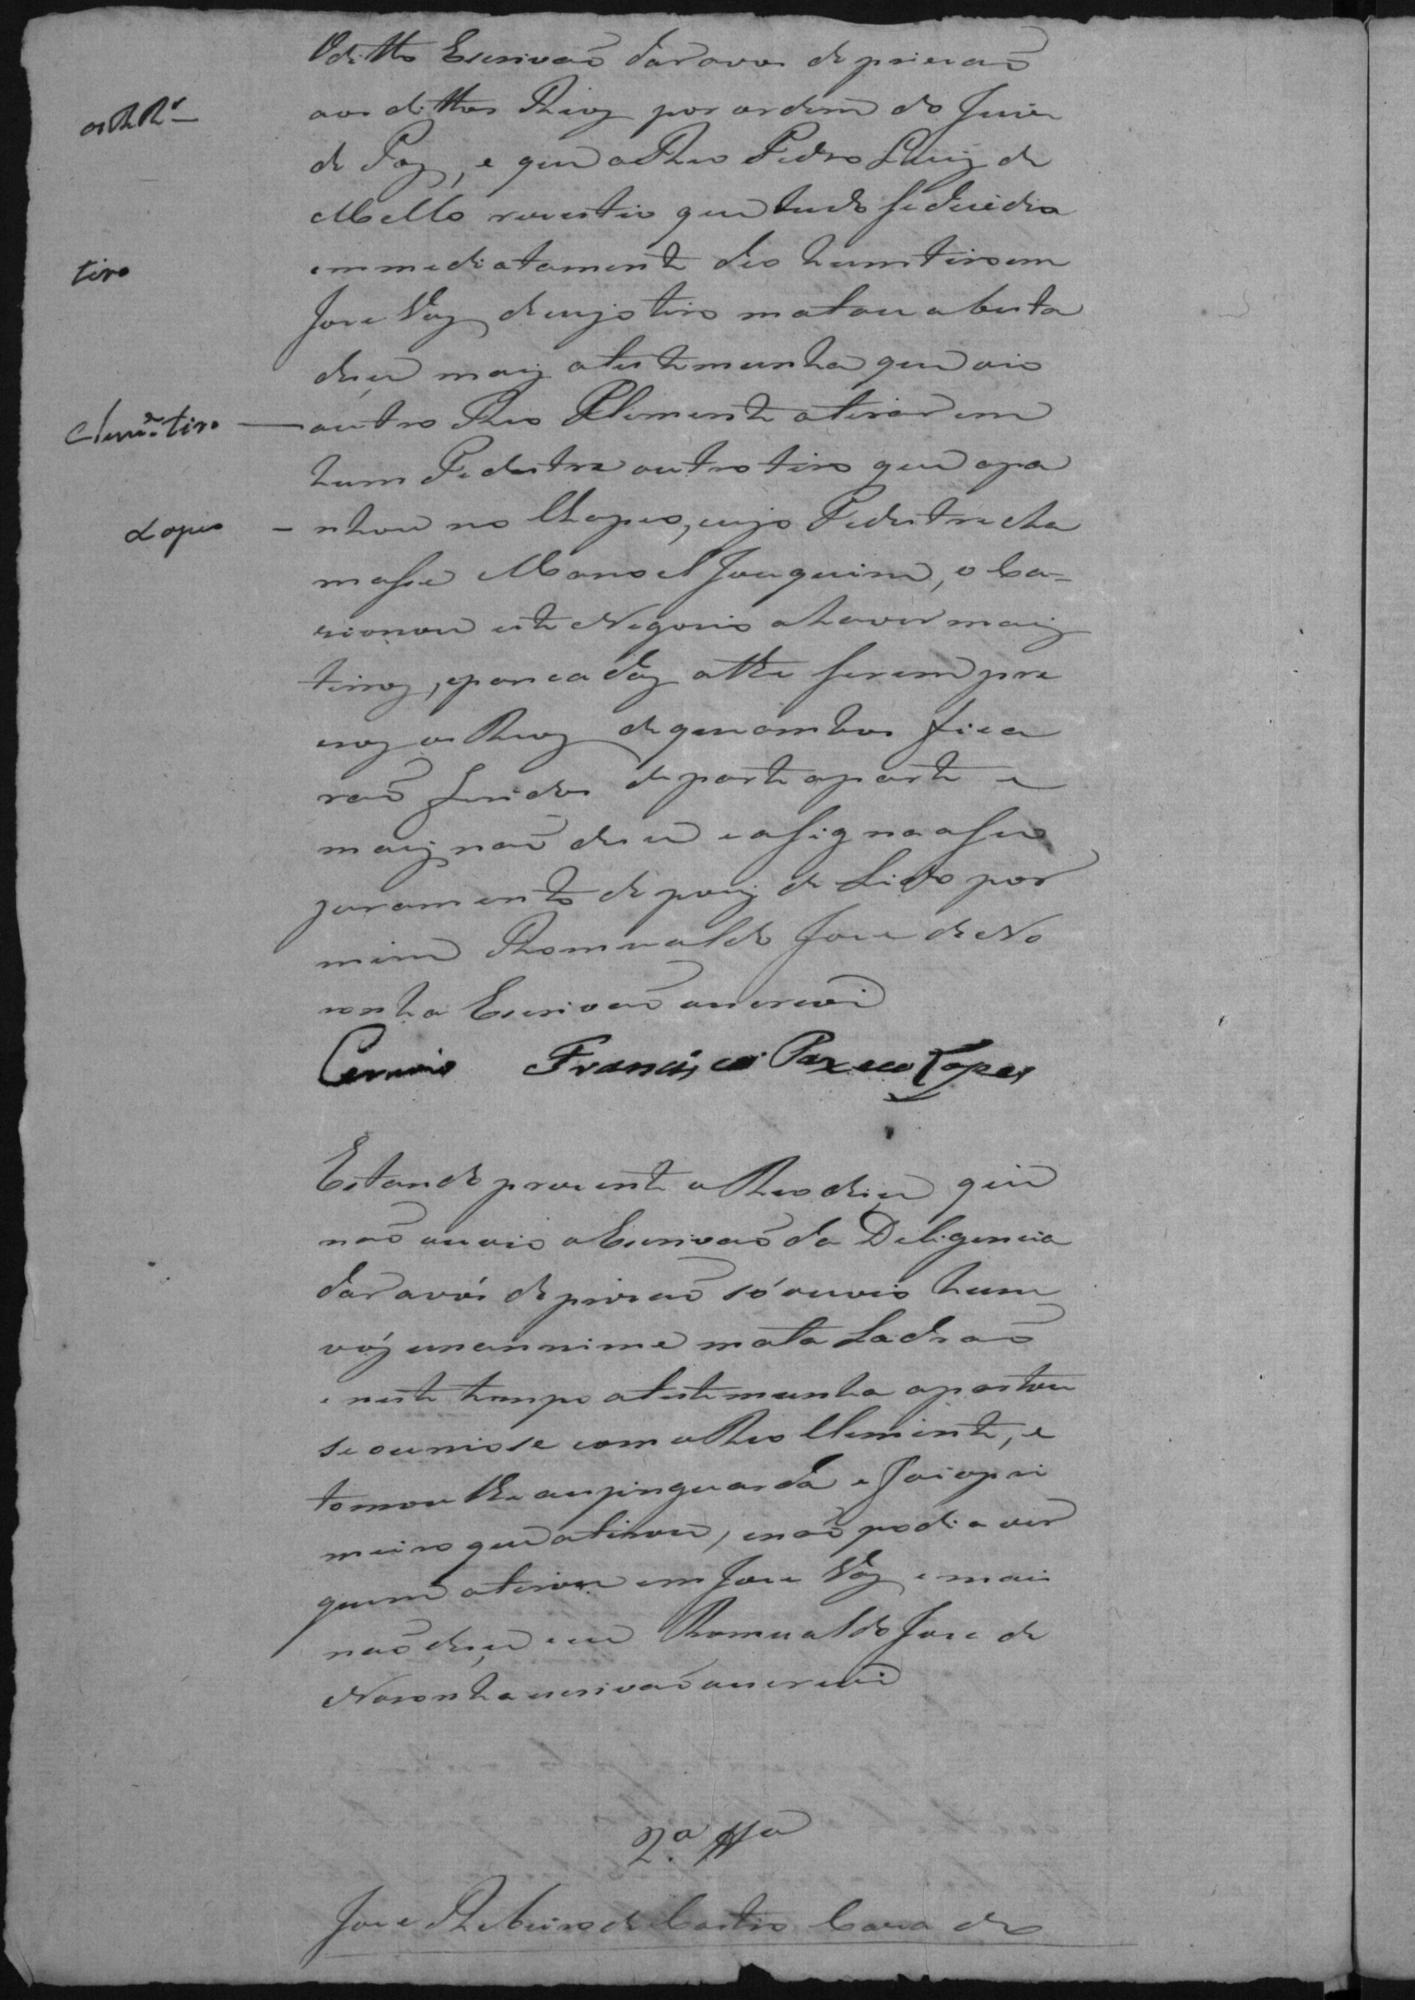 Oditto Escrivaõ dar avos de prizaõ
os RR.ˢ
aos dittos Reoz por ordem do Juiz
de Paz, e que o Reo Pedro Luiz de
Mello rezestio que tudo se decidia
tiro
immediatamente deo hum tiro em
Jose Vaz de cujo tiro matou a besta
disse maiz a testemunha que vio
Clem.ᵉ tiro
outro Reo Clemente atirar em
hum Pedestre outro tiro que apa
Xopeo
nhou no Chapeo, cujo Pedestre cha
masse Manoel Joaquim, o Ca=
zionou este Negocio a haver maiz
tiroz, epancadaz atthe serem pre
zoz os Reoz de que ambos fica
raõ feridos de parte a parte e
maiz naõ disse e asigna o seu
juramento depoiz de Lido por
mim Romualdo Jose de No
ronha Escrivaõ que escrevi
Francisco Paxeco Lopes
Estando prezente o Reo disse que
naõ ouvio o Escrivaõ da Deligencia
dar avós de prizaõ só ouvio huma
vóz unannime mata Ladraõ
e neste tempo a testemunha apartou
se ouniose com o Reo Clemente, e
tomou lhe a espinguarda e foi o pri
meiro que atirou, e naõ podia ver
quem atirou em Jose Vaz e mais
naõ disse eu Romualdo Jose de
Noronha escrivaõ que escrevi
2.ª ttª
Jose Ribeiro de Castro Cazado